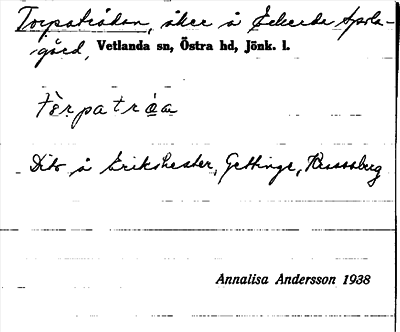 Torpatrådan, åker å Eckerda Spela-
gård, Vetlanda sn, Östra hd, Jönk. l.
tèrpatròa
Dito å Erikshester, Gettinge, Russeberg
Annalisa Andersson 1938